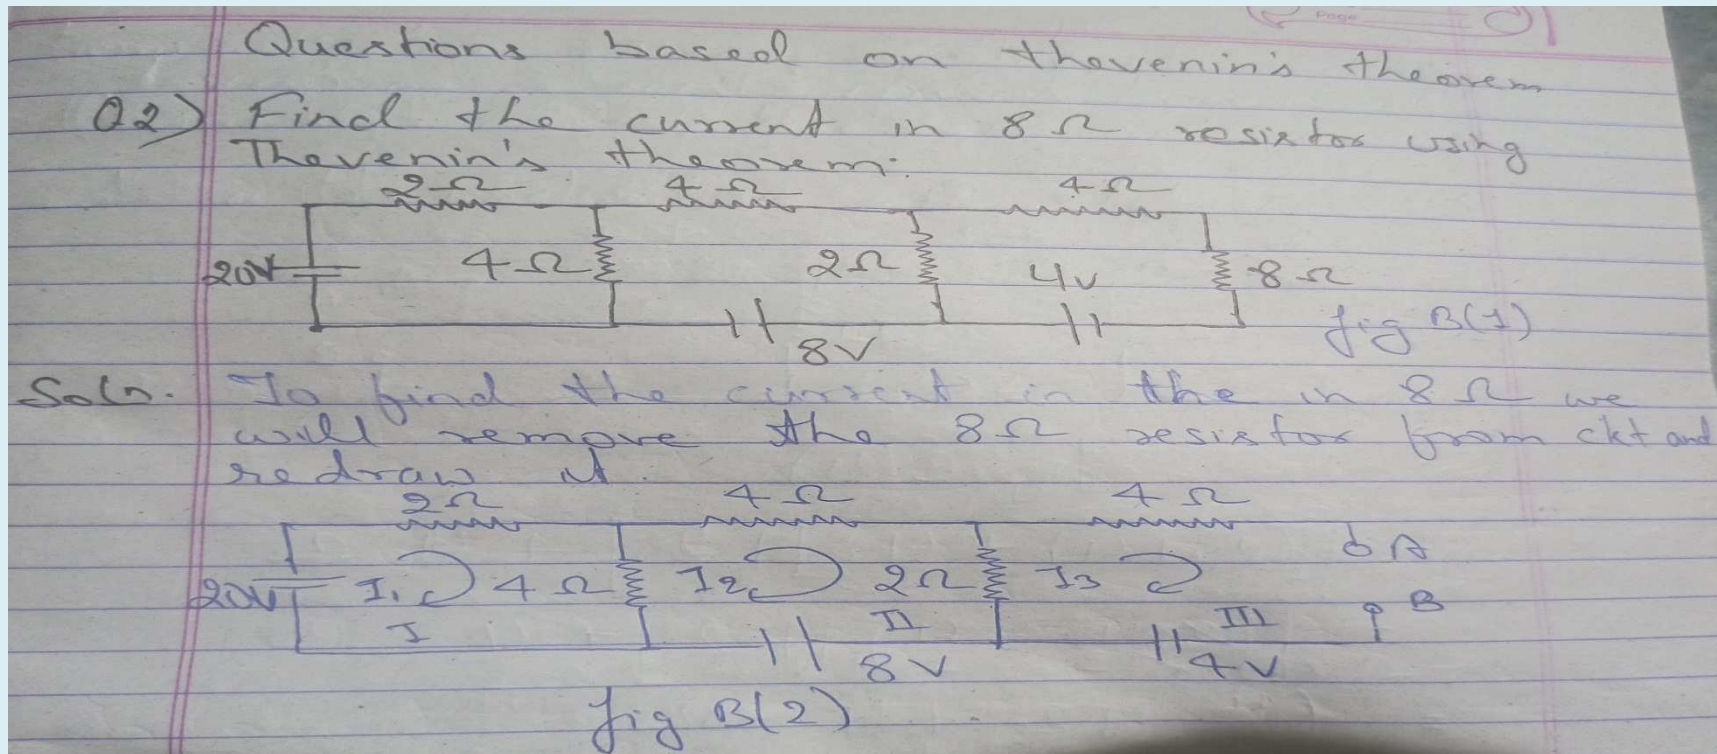 Page
Questions based on thevenin's theorem
Q2) Find the current in 8 Ω resistor using
Thevenin's theorem:
2Ω 4Ω 4Ω
20V 4Ω 2Ω 4v 8Ω
8V
fig B(1)
Soln. To find the current in the in 8 Ω we
will remove the 8Ω resistor from ckt and
redraw it.
2Ω 4Ω 4Ω
A
20V I₁ 4Ω I2 2Ω I3
B
I II III
8V 4V
fig B(2)